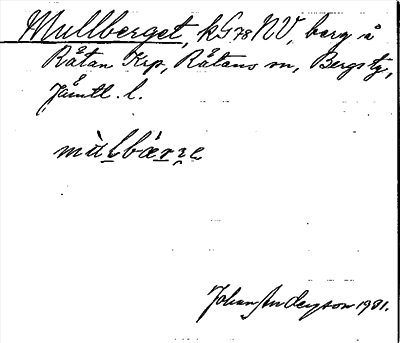 Mullberget, kG78NV, berg å
Råtan Krp, Råtans sn, Bergs tg,
Jämtl. l.
mùlbærʒe
Johan Anderson 1931.